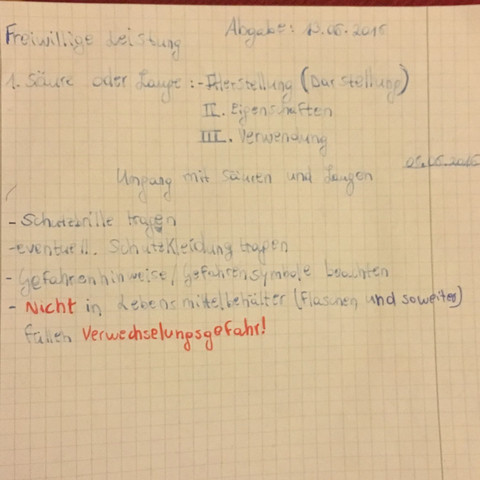 Freiwillige Leistung
Abgabe: 13.06.2016
1. Säure oder Lauge: - I. Herstellung (Darstellung)
II. Eigenschaften
III. Verwendung
06.06.2016
Umgang mit Säuren und Laugen
- Schutzbrille tragen
- eventuell. Schutzkleidung tragen
- Gefahrenhinweise/Gefahrensymbole beachten
- Nicht in Lebensmittelbehälter (Flaschen und soweiter)
füllen Verwechselungsgefahr!